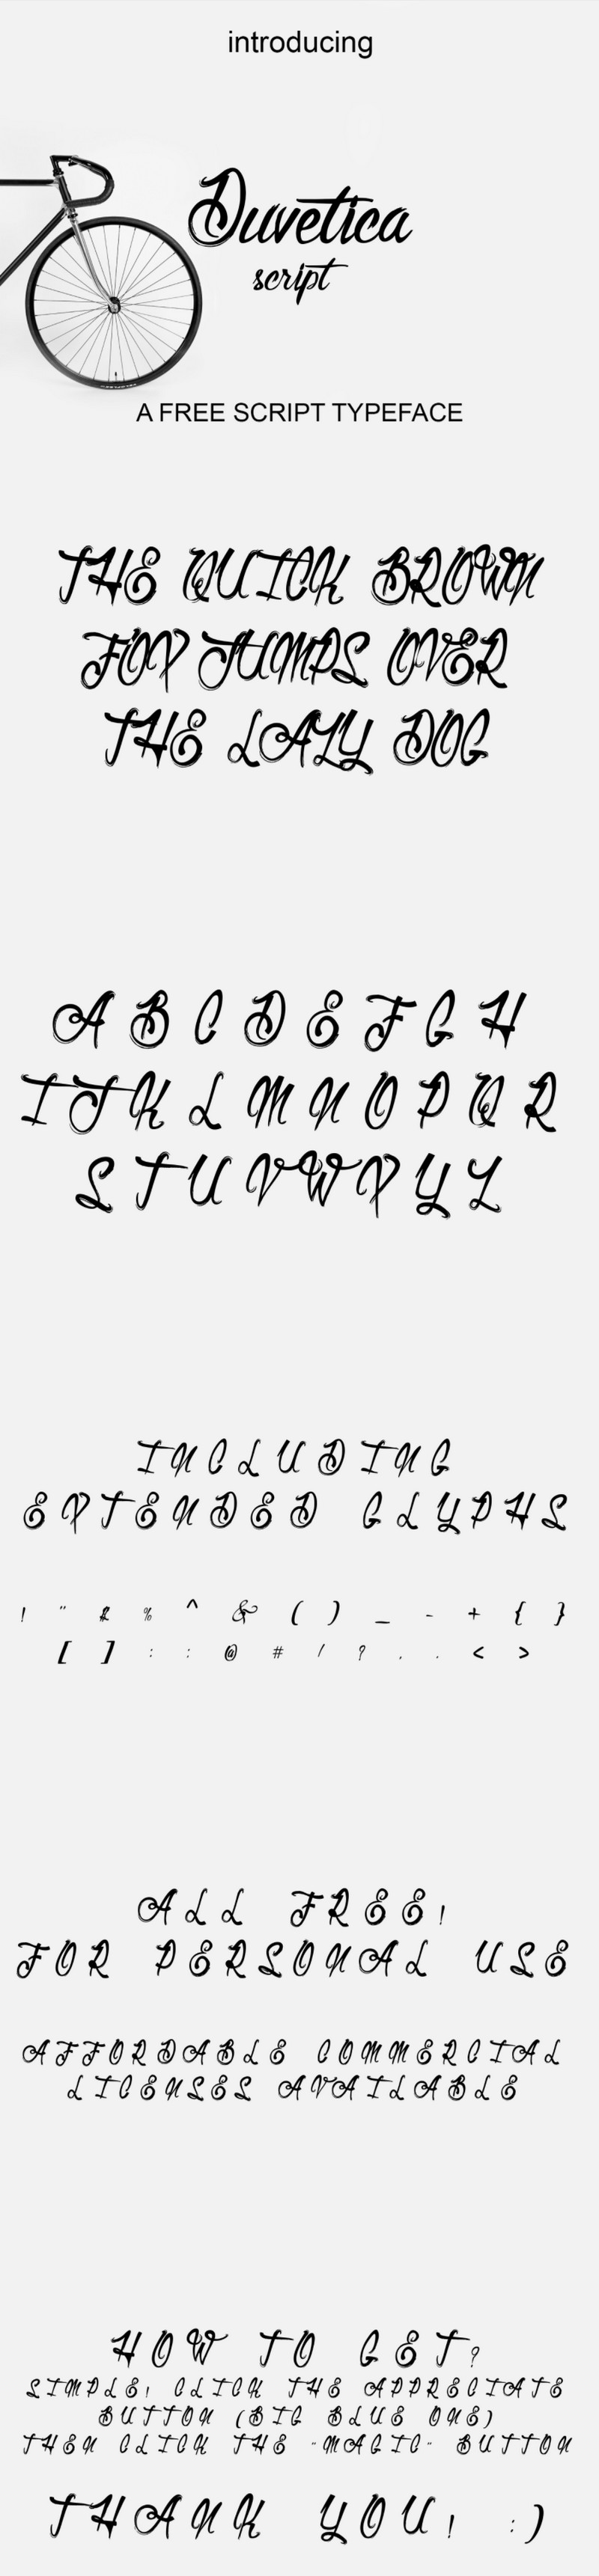 introducing
Duvetica
script
A FREE SCRIPT TYPEFACE
THE QUICK BROWN
FOX JUMPS OVER
THE LAZY DOG
A B C D E F G H
I J K L M N O P Q R
S T U V W X Y Z
INCLUDING
EXTENDED GLYPHS
! " $ % ^ & ( ) _ - + { }
[ ] : : @ # / ? , . < >
ALL FREE!
FOR PERSONAL USE
AFFORDABLE COMMERCIAL
LICENSES AVAILABLE
HOW TO GET?
SIMPLE! CLICK THE APPRECIATE
BUTTON (BIG BLUE ONE)
THEN CLICK THE "MAGIC" BUTTON
THANK YOU! :)